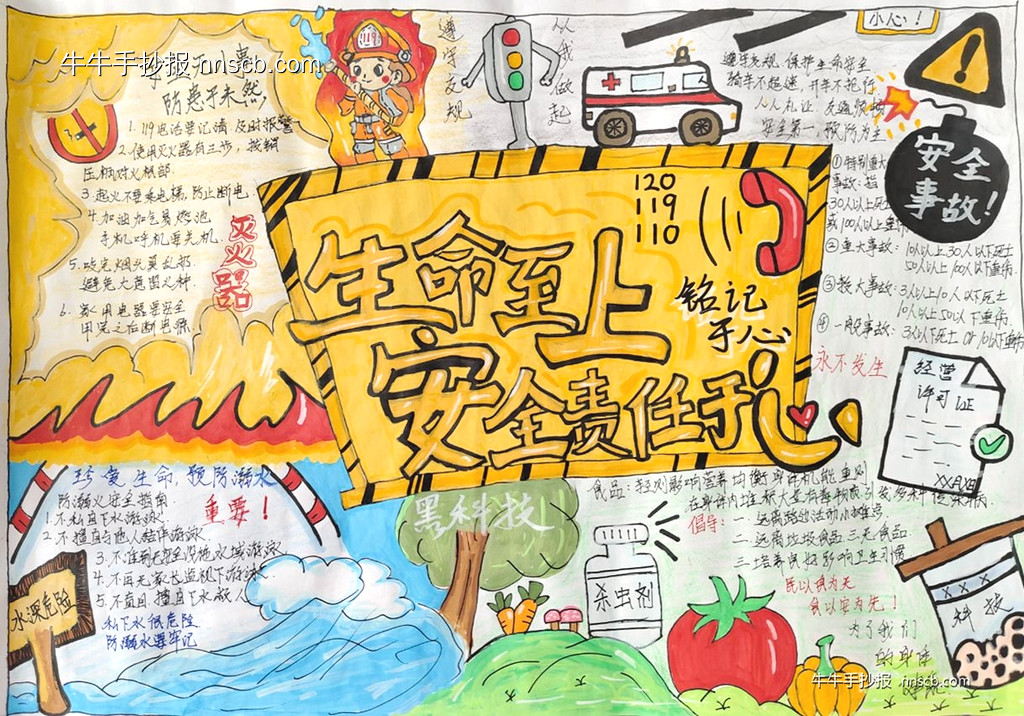 牛牛手抄报 nnscb.com
防患于未然
1. 119电话要记清,及时报警
2. 使用灭火器有三步,拔销
压柄对火根部.
3. 起火不要乘电梯,防止断电
4. 加油加气易燃池
手机呼机要关机.
5. 吸完烟头莫乱扔
避免大意留火种.
6. 家用电器要安全
用完之后断电源.
灭火器
遵守交规
从我做起
120
119
110
生命至上
安全责任于心
铭记
于心
小心!
遵守交规 保护生命安全
骑车不超速 开车不抢行
人人礼让
安全第一,预防为主
安全
事故!
①特别重大
事故:指
30人以上死亡
或100人以上重伤
②重大事故:10人以上30人以下死亡
50人以上100人以下重伤.
③较大事故:3人以上10人以下死亡
10人以上50以下重伤.
④一般事故:3人以下死亡 or 10以下重伤
永不发生
经营
许可证
XX月XX日
珍爱生命,预防溺水
防溺水安全指南
重要!
1. 不私自下水游泳.
2. 不擅自与他人结伴游泳.
3. 不准到无安全设施水域游泳
4. 不再无家长监视下游泳.
5. 不盲目、擅自下水救人
私下水很危险
防溺水要牢记
水深危险
黑科技
食品:轻则影响营养均衡、身体机能,重则
倡导:
一. 远离路边活动小摊点.
二. 远离垃圾食品、三无食品.
三. 培养良好影响卫生习惯
民以食为天
食以安为先!
为了我们
的身体
杀虫剂
科技
牛牛手抄报 nnscb.com